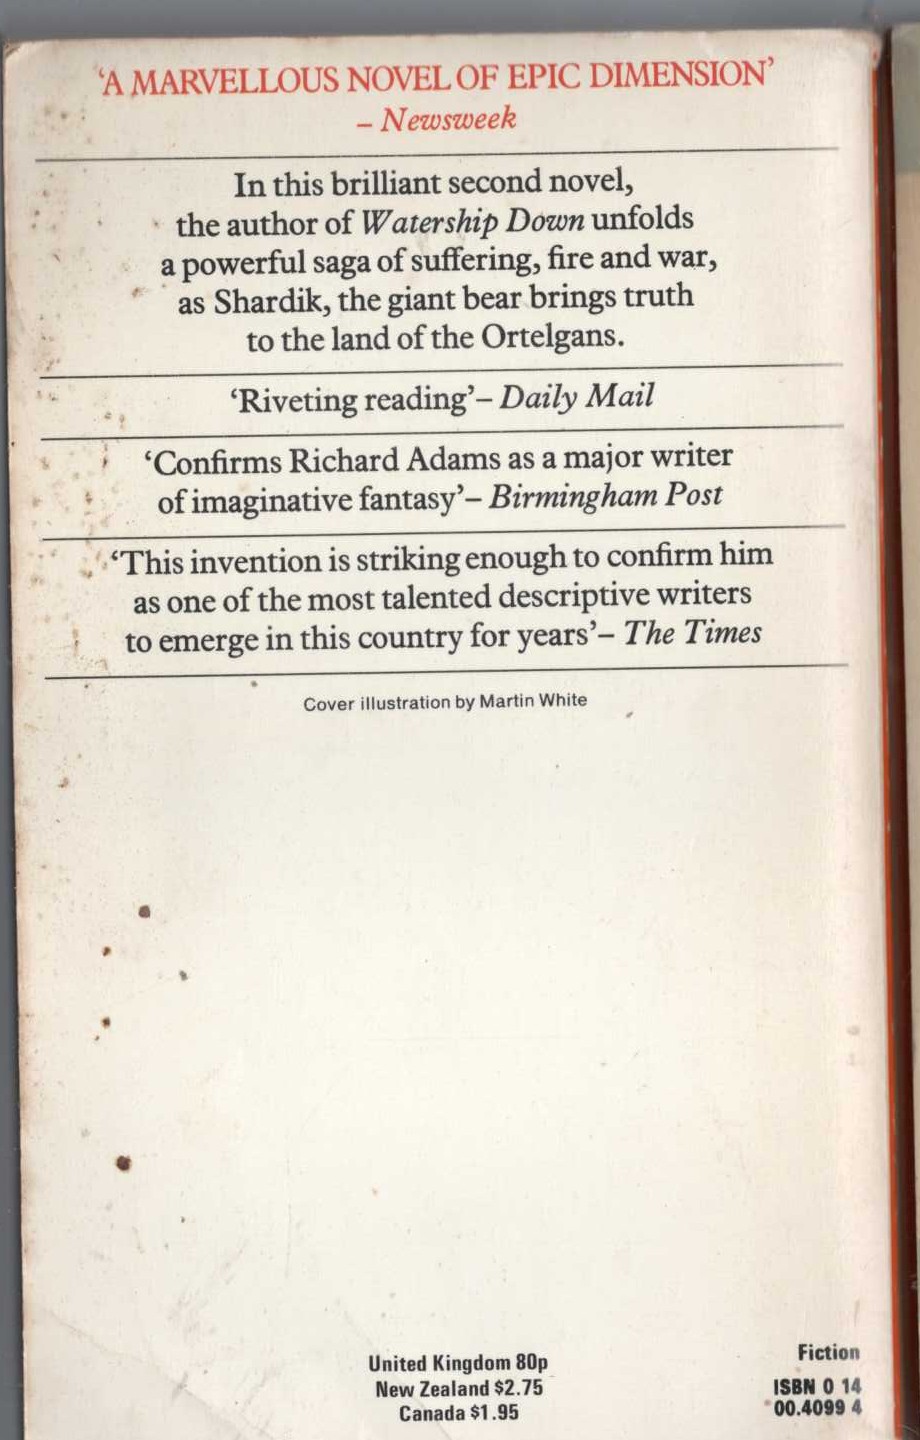 ‘A MARVELLOUS NOVEL OF EPIC DIMENSION’
– Newsweek
In this brilliant second novel,
the author of Watership Down unfolds
a powerful saga of suffering, fire and war,
as Shardik, the giant bear brings truth
to the land of the Ortelgans.
‘Riveting reading’– Daily Mail
‘Confirms Richard Adams as a major writer
of imaginative fantasy’– Birmingham Post
‘This invention is striking enough to confirm him
as one of the most talented descriptive writers
to emerge in this country for years’– The Times
Cover illustration by Martin White
United Kingdom 80p
New Zealand $2.75
Canada $1.95
Fiction
ISBN 0 14
00.4099 4